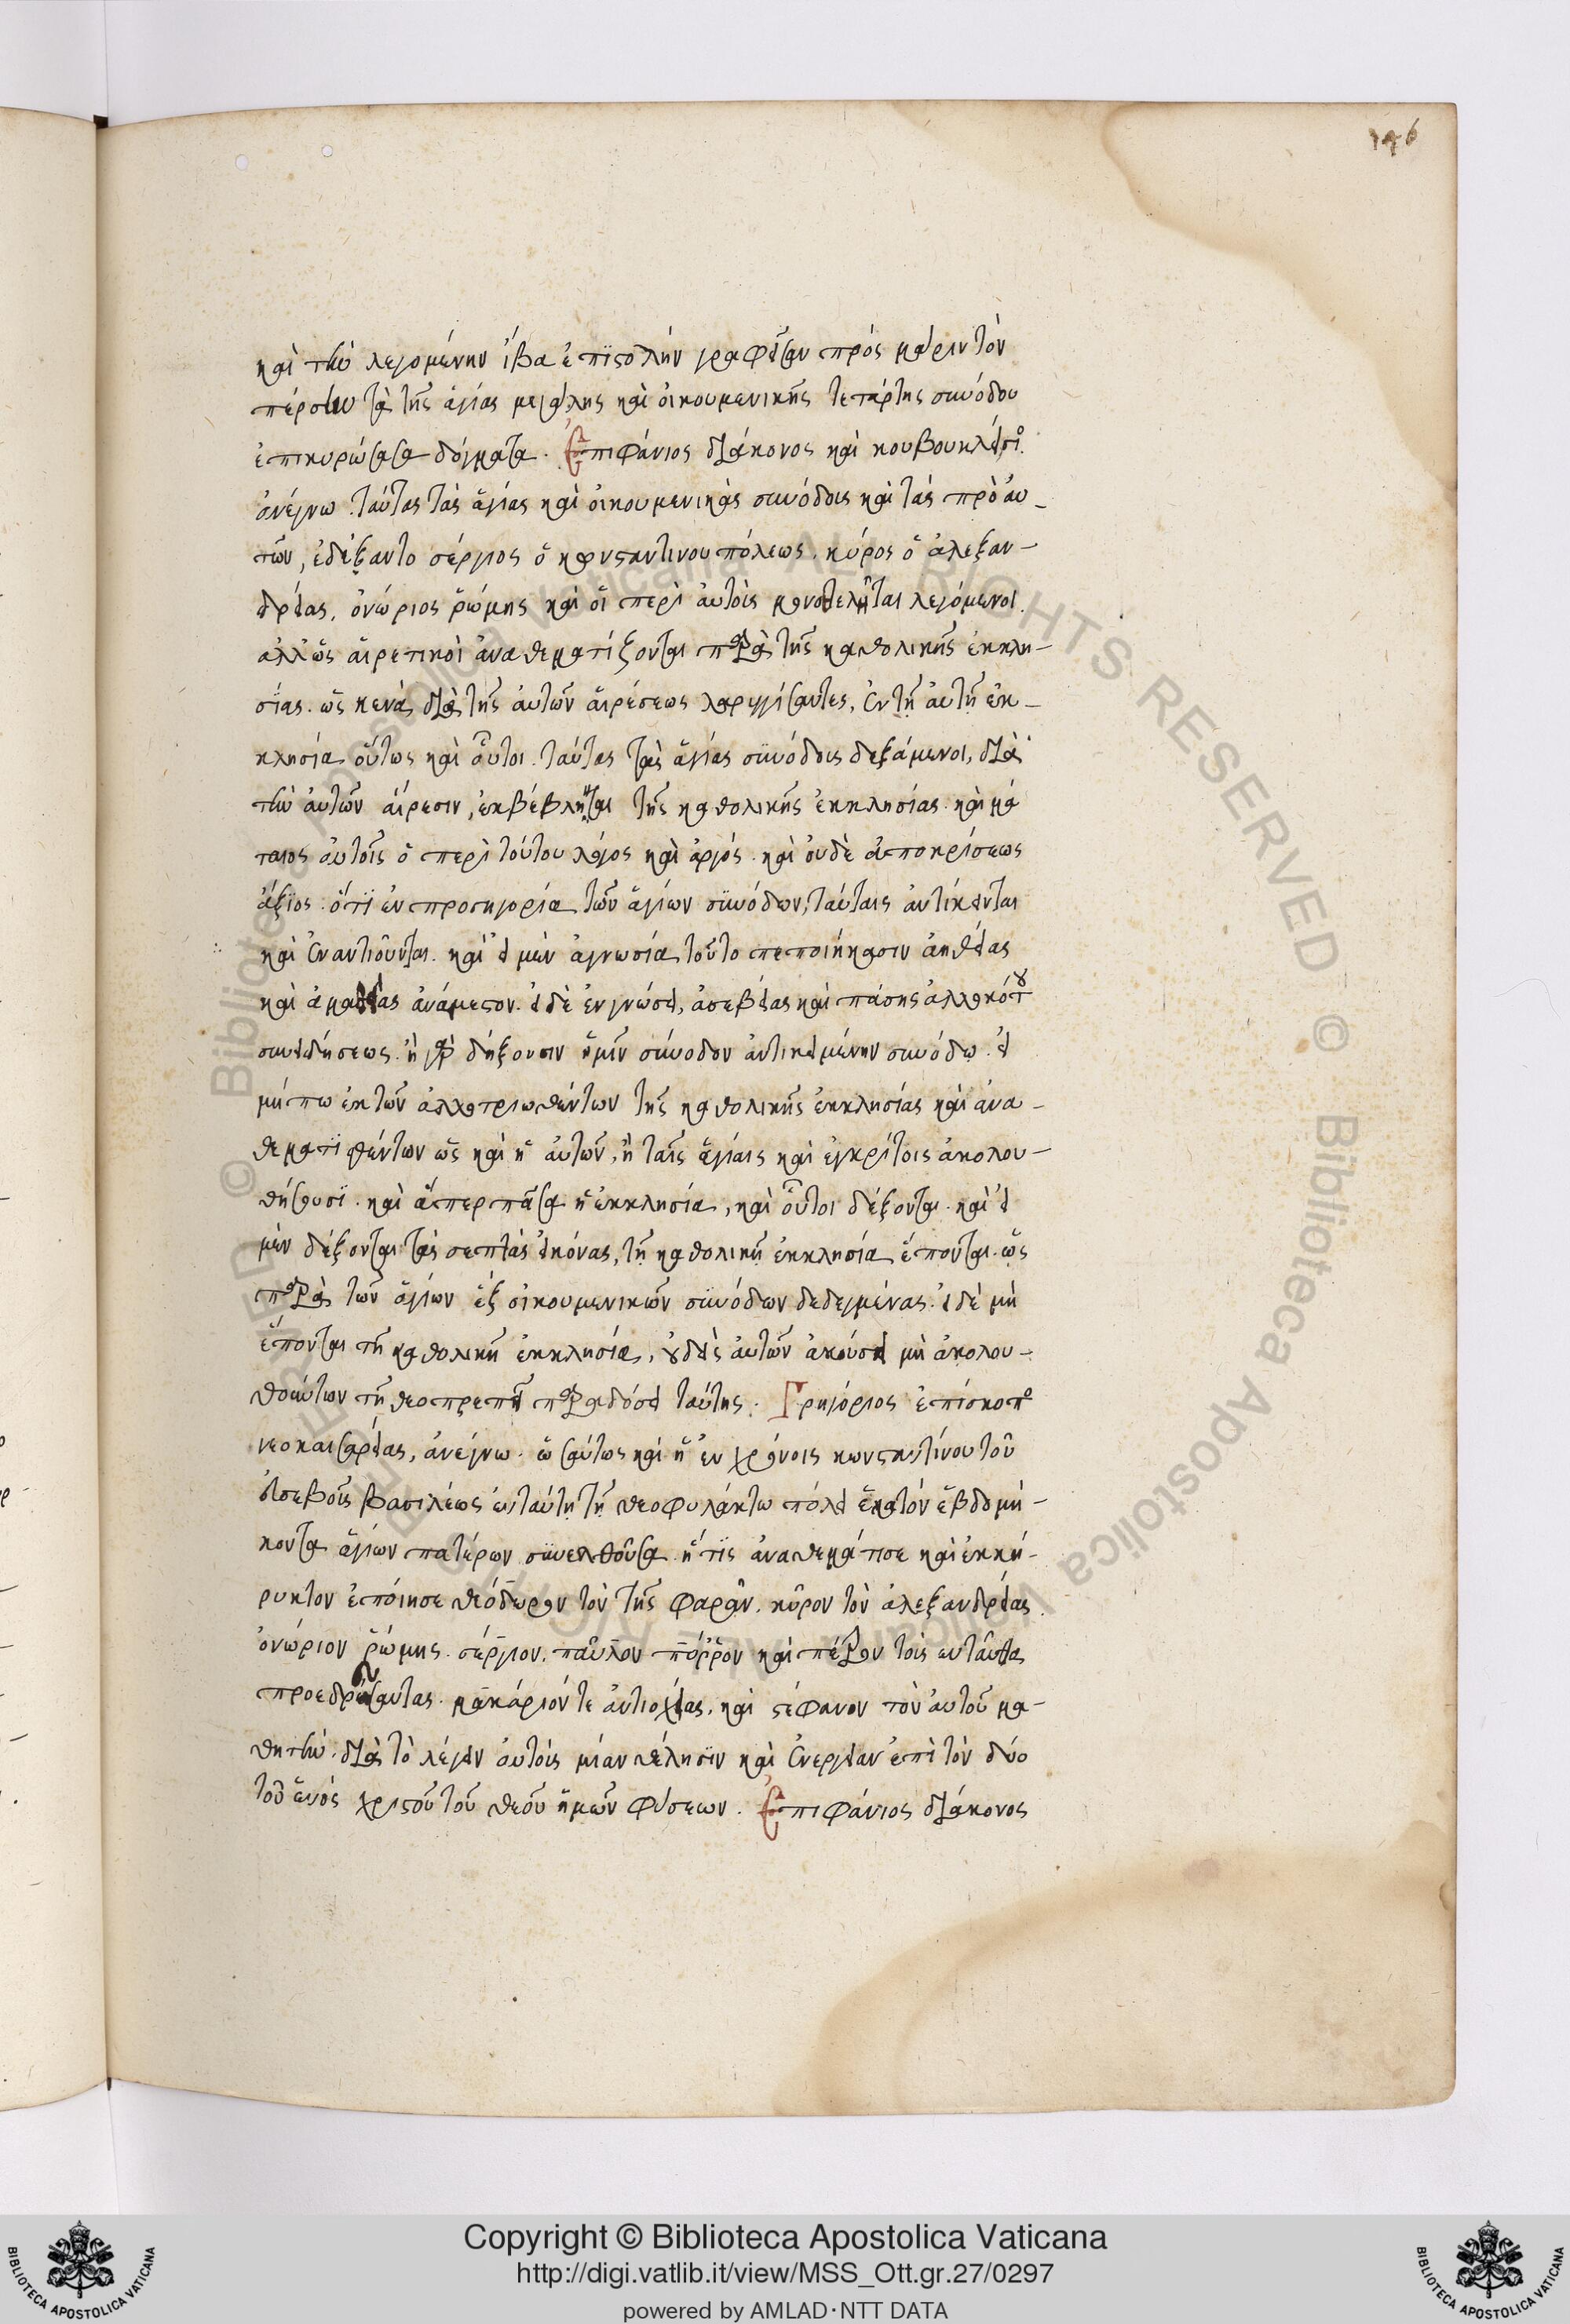 196
καὶ τὴν λεγομένην ἴβα ἐπιστολὴν γραφεῖσαν πρὸς μάριν τὸν
πέρσην τὰ τῆς ἁγίας μεγάλης καὶ οἰκουμενικῆς τετάρτης συνόδου
ἐπικυρώσασα δόγματα. Ἐπιφάνιος διάκονος καὶ κουβουκλείσιο
ἀνέγνω. ταύτας τὰς ἁγίας καὶ οἰκουμενικὰς συνόδους καὶ τὰς πρὸ αυ-
τῶν, ἐδέξαντο σέργιος ὁ κωνσταντινουπόλεως. κύρος ὁ ἀλεξαν-
δρείας, ὀνώριος ῥώμης καὶ οἱ περὶ αὐτοὺς μονοθελῆται λεγόμενοι.
ἀλλ' ὡς αἱρετικοὶ ἀναθεματίζονται παρὰ τῆς καθολικῆς ἐκκλη-
σίας. ὡς κενὰ διὰ τῆς αὐτῶν αἱρέσεως λαρυγγίσαντες, ἐν τῇ αὐτῇ ἐκ-
κλησία οὕτως καὶ οὗτοι. ταύτας τὰς ἁγίας συνόδους δεξάμενοι, διὰ
τὴν αὐτῶν αἵρεσιν, ἐκβέβληνται τῆς καθολικῆς ἐκκλησίας. καὶ μά
ταιος αὐτοῖς ὁ περὶ τούτου λόγος καὶ ἀργός. καὶ οὐδὲ ἀποκρίσεως
ἄξιος. ὅτι ἐν προσηγορία τῶν ἁγίων συνόδων, ταύταις ἀντίκεινται
καὶ ἐναντιοῦνται. καὶ εἰ μὲν ἀγνωσία τοῦτο πεποιήκασιν ἀηθείας
καὶ ἀμαθείας ἀνάμεστον. εἰ δὲ ἐν γνώσει, ἀσεβείας καὶ πάσης ἀλλοκότου
συνειδήσεως. ἢ γὰρ δείξουσιν ἡμῖν σύνοδον ἀντικειμένην συνόδω. εἰ
μήπω ἐκ τῶν ἀλλοτριωθέντων τῆς καθολικῆς ἐκκλησίας καὶ ἀνα-
θεματισθέντων ὡς καὶ ἡ αὐτῶν, ἢ ταῖς ἁγίαις καὶ ἐγκρίτοις ἀκολου-
θήσουσι. καὶ ἅπερ πᾶσα ἡ ἐκκλησία, καὶ οὗτοι δέξονται. καὶ εἰ
μὲν δέξονται τὰς σεπτὰς εἰκόνας, τῇ καθολικῇ ἐκκλησία ἕπονται. ὡς
παρὰ τῶν ἁγίων ἓξ οἰκουμενικῶν συνόδων δεδεγμένας. εἰ δὲ μὴ
ἕπονται τῇ καθολικῇ ἐκκλησία, οὐδεὶς αὐτῶν ἀκούσει μὴ ἀκολου-
θούντων τῇ θεοπρεπεῖ παραδόσει ταύτης. Γρηγόριος ἐπίσκοπο
νεοκαισαρείας, ἀνέγνω. ὡσαύτως καὶ ἡ ἐν χρόνοις κωνσταντίνου τοῦ
εὐσεβοῦς βασιλέως ἐν ταύτῃ τῇ θεοφυλάκτω πόλει ἑκατόν ἑβδομή-
κοντα ἁγίων πατέρων συνελθοῦσα. ἥτις ἀναθεμάτισε καὶ ἐκκή-
ρυκτον ἐποίησε θεόδωρον τὸν τῆς φαρὰν. κῦρον τὸν ἀλεξανδρείας.
ὀνώριον ῥώμης. σέργιον. παῦλον πύρρον καὶ πέτρον τοὺς ἐνταῦθα
προεδρεύσαντας. μακάριόν τε ἀντιοχείας. καὶ στέφανον τὸν αὐτοῦ μα-
θητὴν. διὰ τὸ λέγειν αὐτοὺς μίαν θέλησιν καὶ ἐνέργειαν ἐπὶ τὸν δύο
τοῦ ἑνὸς χριστοῦ τοῦ θεοῦ ἡμῶν φύσεων. Ἐπιφάνιος διάκονος
© Biblioteca Apostolica Vaticana ALL RIGHTS RESERVED © Biblioteca Apostolica Vaticana ALL RIGHTS RESERVED
Copyright © Biblioteca Apostolica Vaticana
http://digi.vatlib.it/view/MSS_Ott.gr.27/0297
powered by AMLAD·NTT DATA
BIBLIOTECA APOSTOLICA VATICANA
BIBLIOTECA APOSTOLICA VATICANA